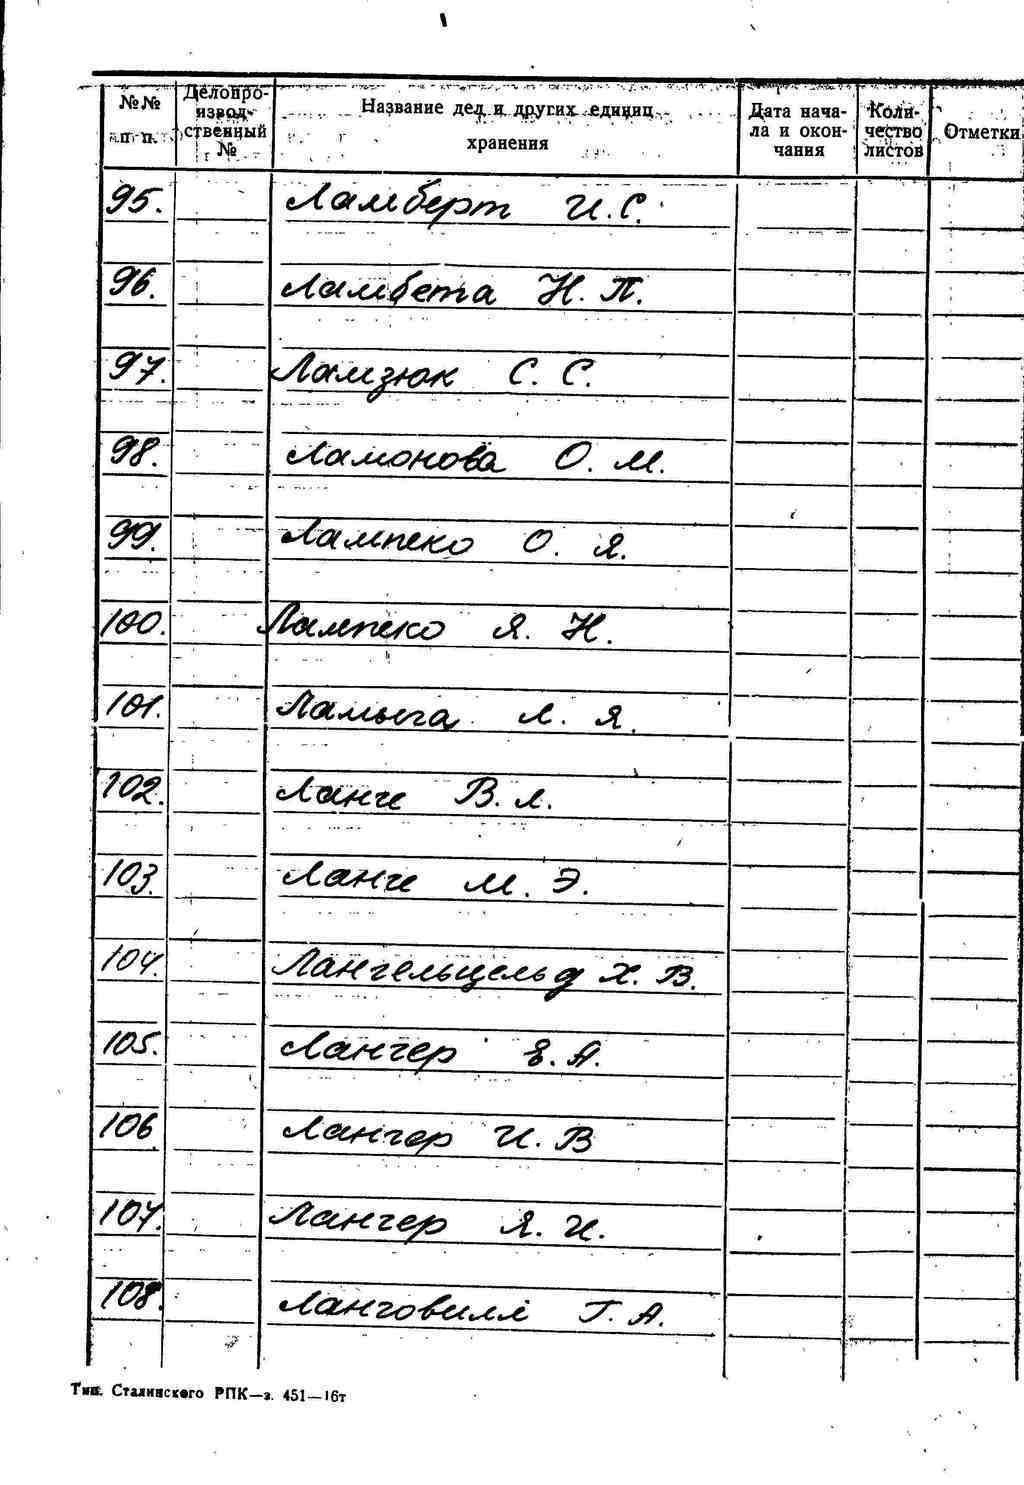 №№ п. п. Делопроизводственный № Название дел и других единиц хранения Дата начала и окончания Количество листов Отметки
95. Ламберт И. С.
96. Ламбета Н. П.
97. Ламзюк С. С.
98. Ламонова О. М.
99. Лампеко О. Я.
100. Лампеко Я. Н.
101. Ламыга Л. Я.
102. Ланге В. Л.
103. Ланге М. Э.
104. Лангельцельд Х. В.
105. Лангер Е. А.
106 Лангер И. В
107. Лангер Я. И.
108. Ланговилл Г. А.
Тип. Сталинского РПК—з. 451—16т